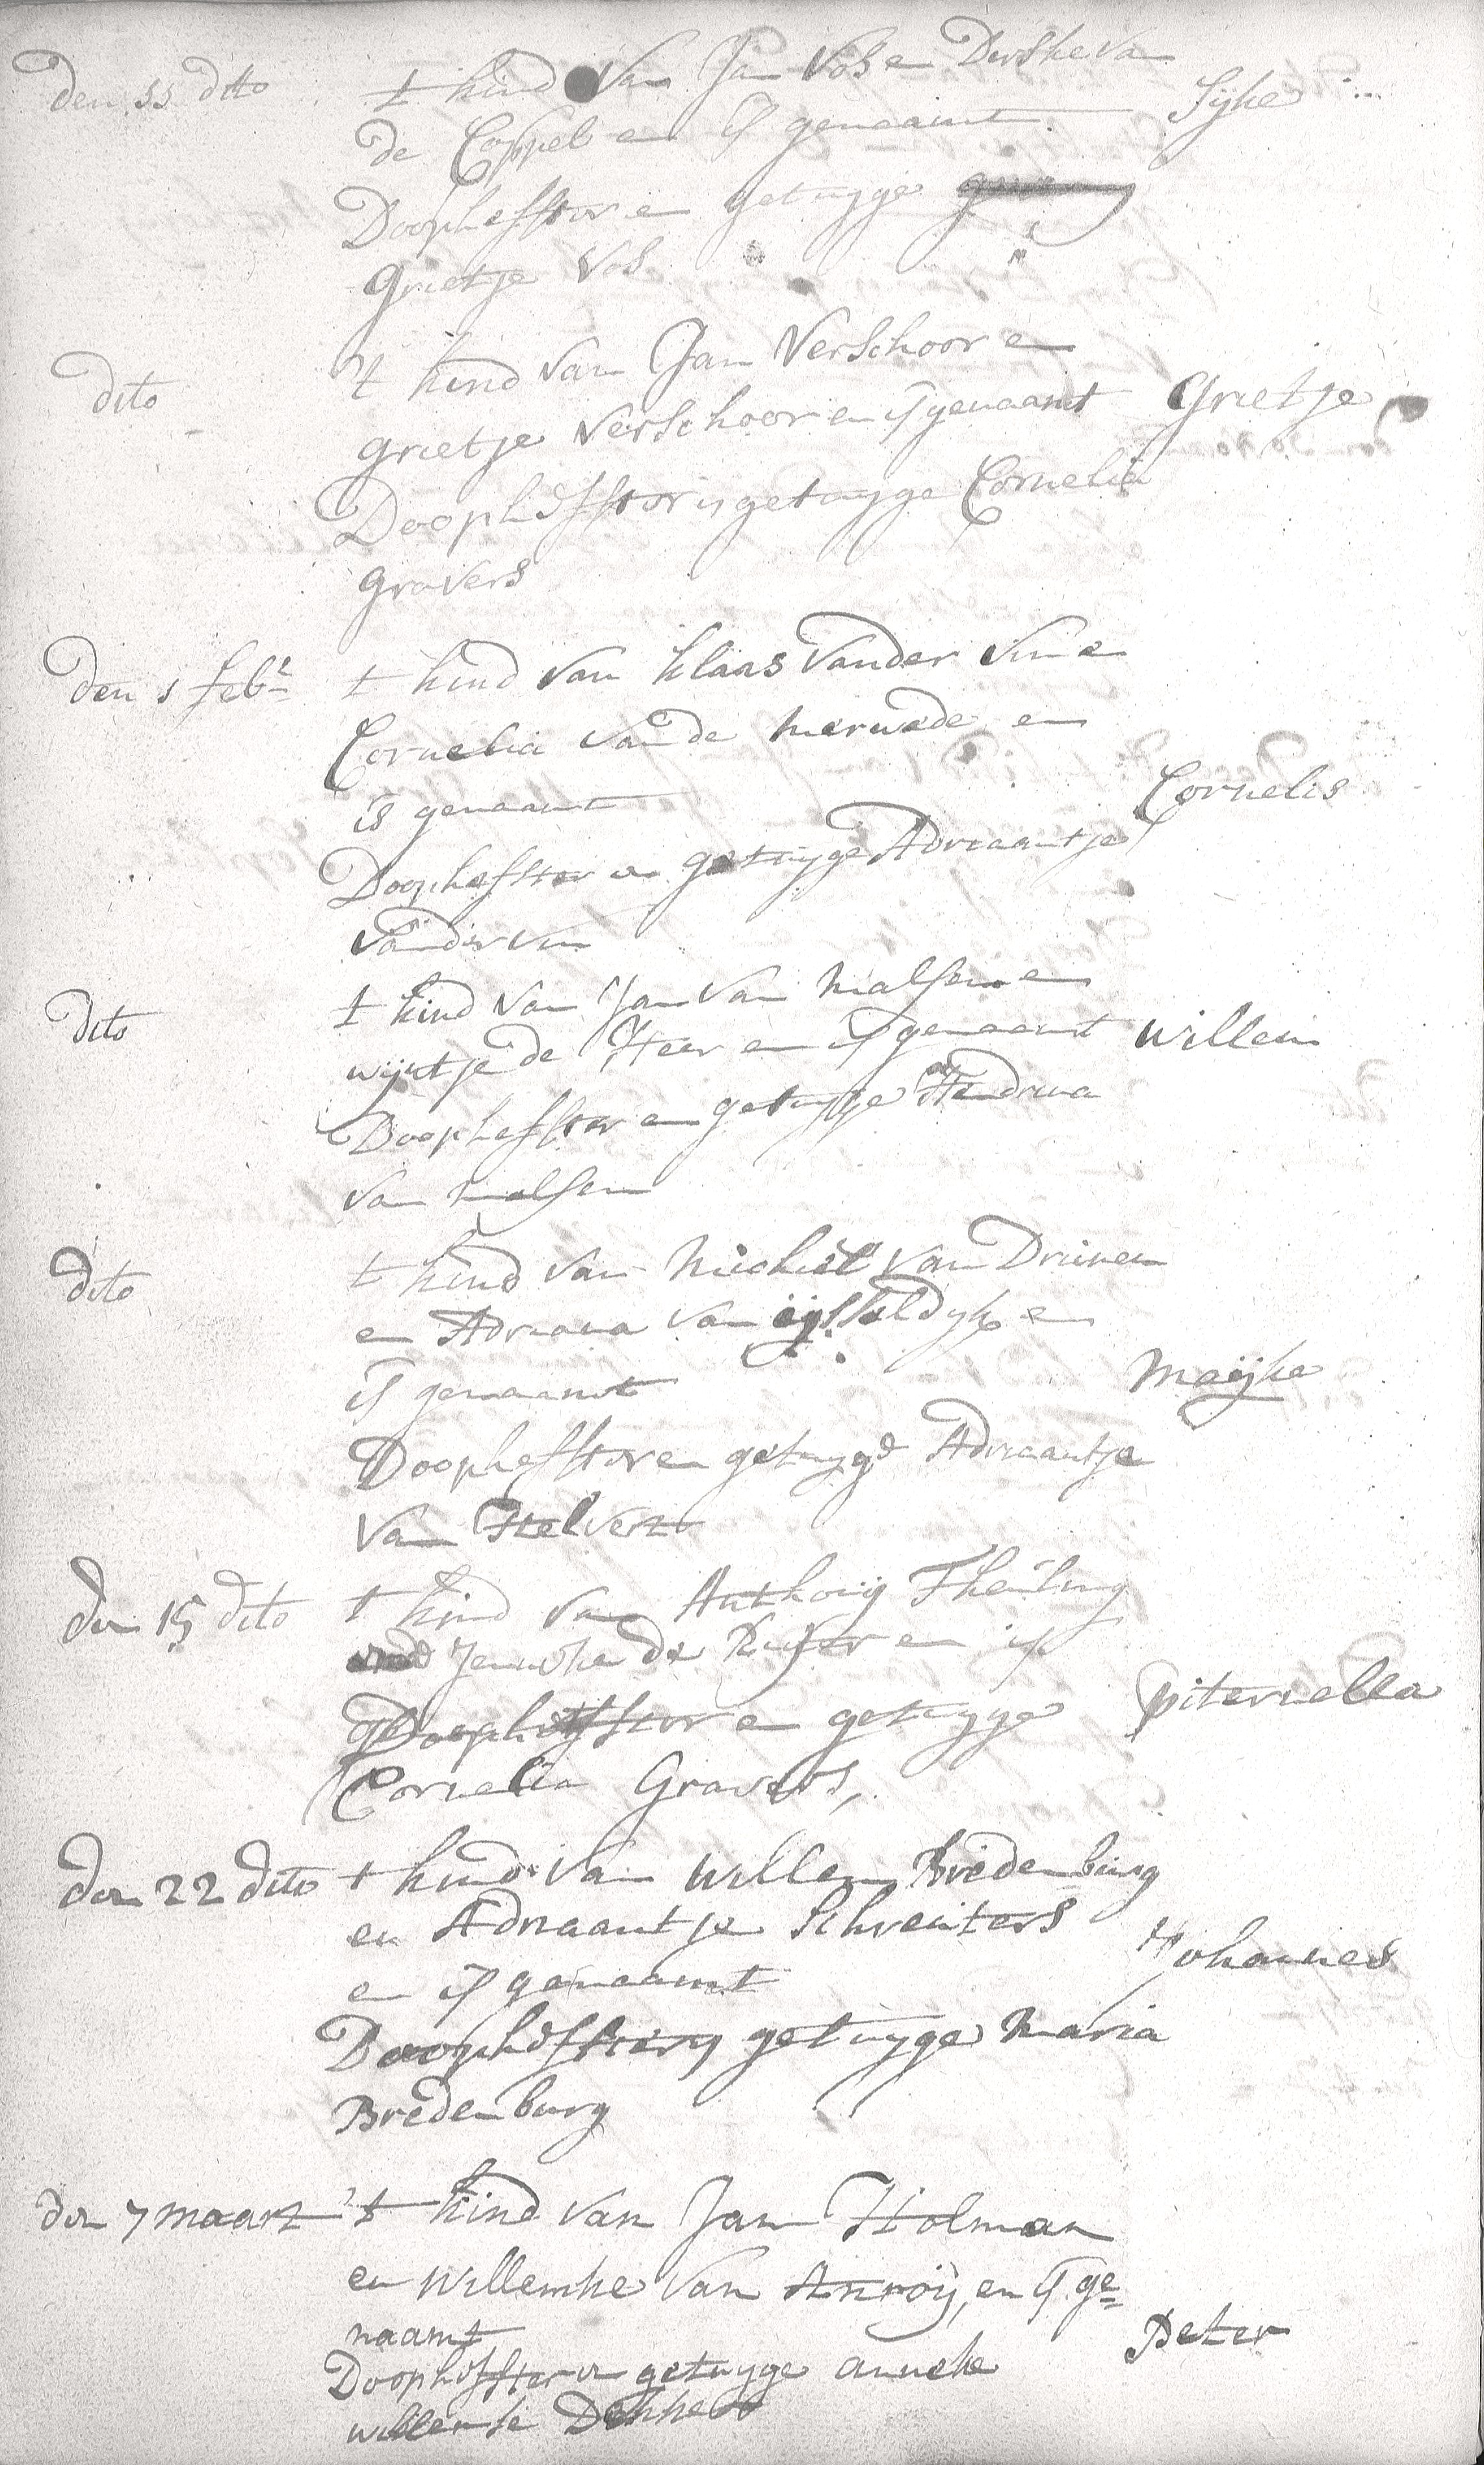 den 11 dito t kind van Jan Vos en Dirske van
de Coppel en is genaamt Sijke
Doophefster en getuyge
Grietje Vos
dito 't kind van Jan Verschoor en
Grietje Verschoor en is genaamt Grietje
Doophefster en getuyge Cornelia
Gravers
den 1 febr t kind van Klaas vander Vin en
Cornelia vande Merwede en
is genaamt Cornelis
Doophefster en getuyge Adriaantje
vander Vin
dito t kind van Jan van Malsem en
wijntje de Heer en is genaamt Willem
Doophefster en getuyge Hendrina
van Malsem
dito t kind van Michiel van Drunen
en Adriana van ijsseldijk en
is genaamt Maijke
Doophefster en getuyge Adriaantje
van Helvert
den 15 dito t kind van Anthonij Theuling
Jenneke de Ruijter en is
Doophefster en getuyge piternella
Cornelia Gravers,
den 22 dito t kind van Willem Bredenburg
en Adriaantje Schreuters
en is genaamt Johannes
Doophefster en getuyge Maria
Bredenburg
den 7 maart 't kind van Jan Holman
en Willemke van Anroij, en is ge=
naamt Peter
Doophefster en getuyge anneke
willemse Dekker